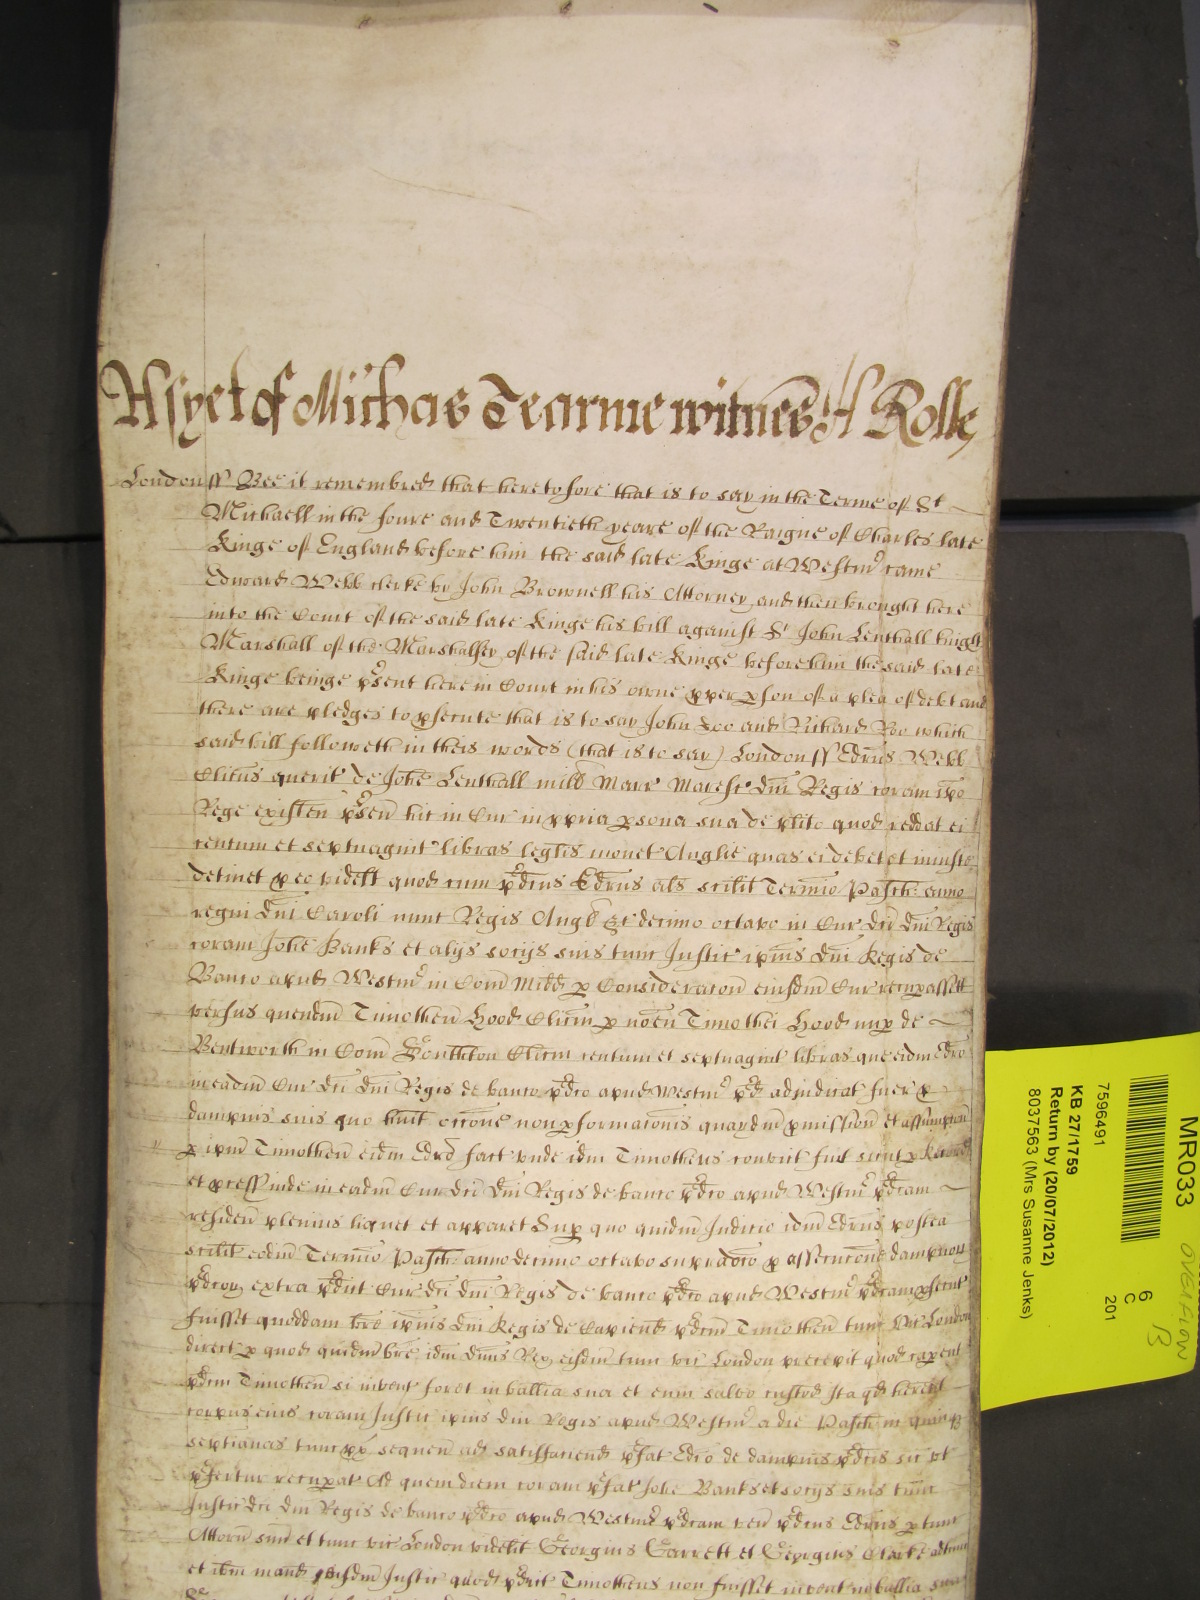 As yet of Michas Tearme witnes H Rolle
London ss Bee it remembred that heretofore that is to say in the Terme of St
Michaell in the foure and Twentieth yeare of the Raigne of Charles late
Kinge of England before him the said late Kinge at Westmr came
Edward Webb clerke by John Brownell his Attorney and then brought here
into the Court of the said late Kinge his bill against Sr John Lenthall knight
Marshall of the Marshalsey of the said late Kinge before him the said late
Kinge beinge psent here in Court in his owne pper pson of a plea of debt and
there are pledges to psecute that is to say John Doo and Richard Roo which
said bill followeth in theis words (that is to say) London ss Edrus Webb
Clicus querit de Johe Lenthall milit Marr Maresc dni Regis coram ipo
Rege existen psen hic in Cur in ppria psona sua de plito quod reddat ei
centum et septuagint libras leglis monet Anglie quas ei debet et iniuste
detinet p eo videlt quod cum pdcus Edrus als scilit Termio Pasch anno
regni dni Caroli nunc Regis Angl &c decimo octavo in Cur dci dni Regis
coram Johe Banks et alijs socijs suis tunc Justic ipius dni Regis de
Banco apud Westmr in Com Midd p Consideracon eiusdm Cur recupassett
versus quendm Timotheu Hood Clicum p noen Timothei Hood nup de
Bentworth in Com Southton Clicm centum et septuagint libras que eidm Edro
in eadm Cur dci dni Regis de banco pdco apud Westmr pd adiudicat fuer p
dampnis suis que huit occone non pformaconis quardm pmission et assumpcon
p ipm Timotheu eidm Edro fact unde idm Timotheus convict fuit sicut p Record
et pcess inde in eadm Cur dci dni Regis de banco pdco apud Westmr pdcam
residen plenius liquet et apparet Sup quo quidm Judicio idm Edrus postea
scilit eodm Termio Pasch anno decimo octavo supradco p assecucone dampnou
pdcou extra pdict Cur dci dni Regis de banco pdco apud Westmr pdcam psecut
fuisset quoddam bre ipius dni Regis de Capiend pdcm Timotheu tunc vic London
direct p quod quidm bre idm dnus Rex eisdm tunc vic London precepit quod capent
pdcm Timotheu si invent foret in ballia sua et eum salvo custod Ita qd herent
corpus eius coram Justic ipius dni Regis apud Westmr a die Pasch in quinqz
septianas tunc px sequen ad satisfaciend pfat Edro de dampnis pdcis sic ut
pfertur recupat Ad quem diem coram pfat Johe Banks et socijs suis tunc
Justic dci dni Regis de banco pdco apud Westmr pdcam ven pdcus Edrus p tunc
Attorn suu et tunc vic London videlit Georgius Garrett et Georgius Clarke adtunc
et ibm mand eisdm Justic quod pdict Timotheus non fuisset invent in ballia sua
MR033
7596491
KB 27/1759
Return by (20/07/2012)
8037563 (Mrs Susanne Jenks)
6
C
201
OVERFLOW
B